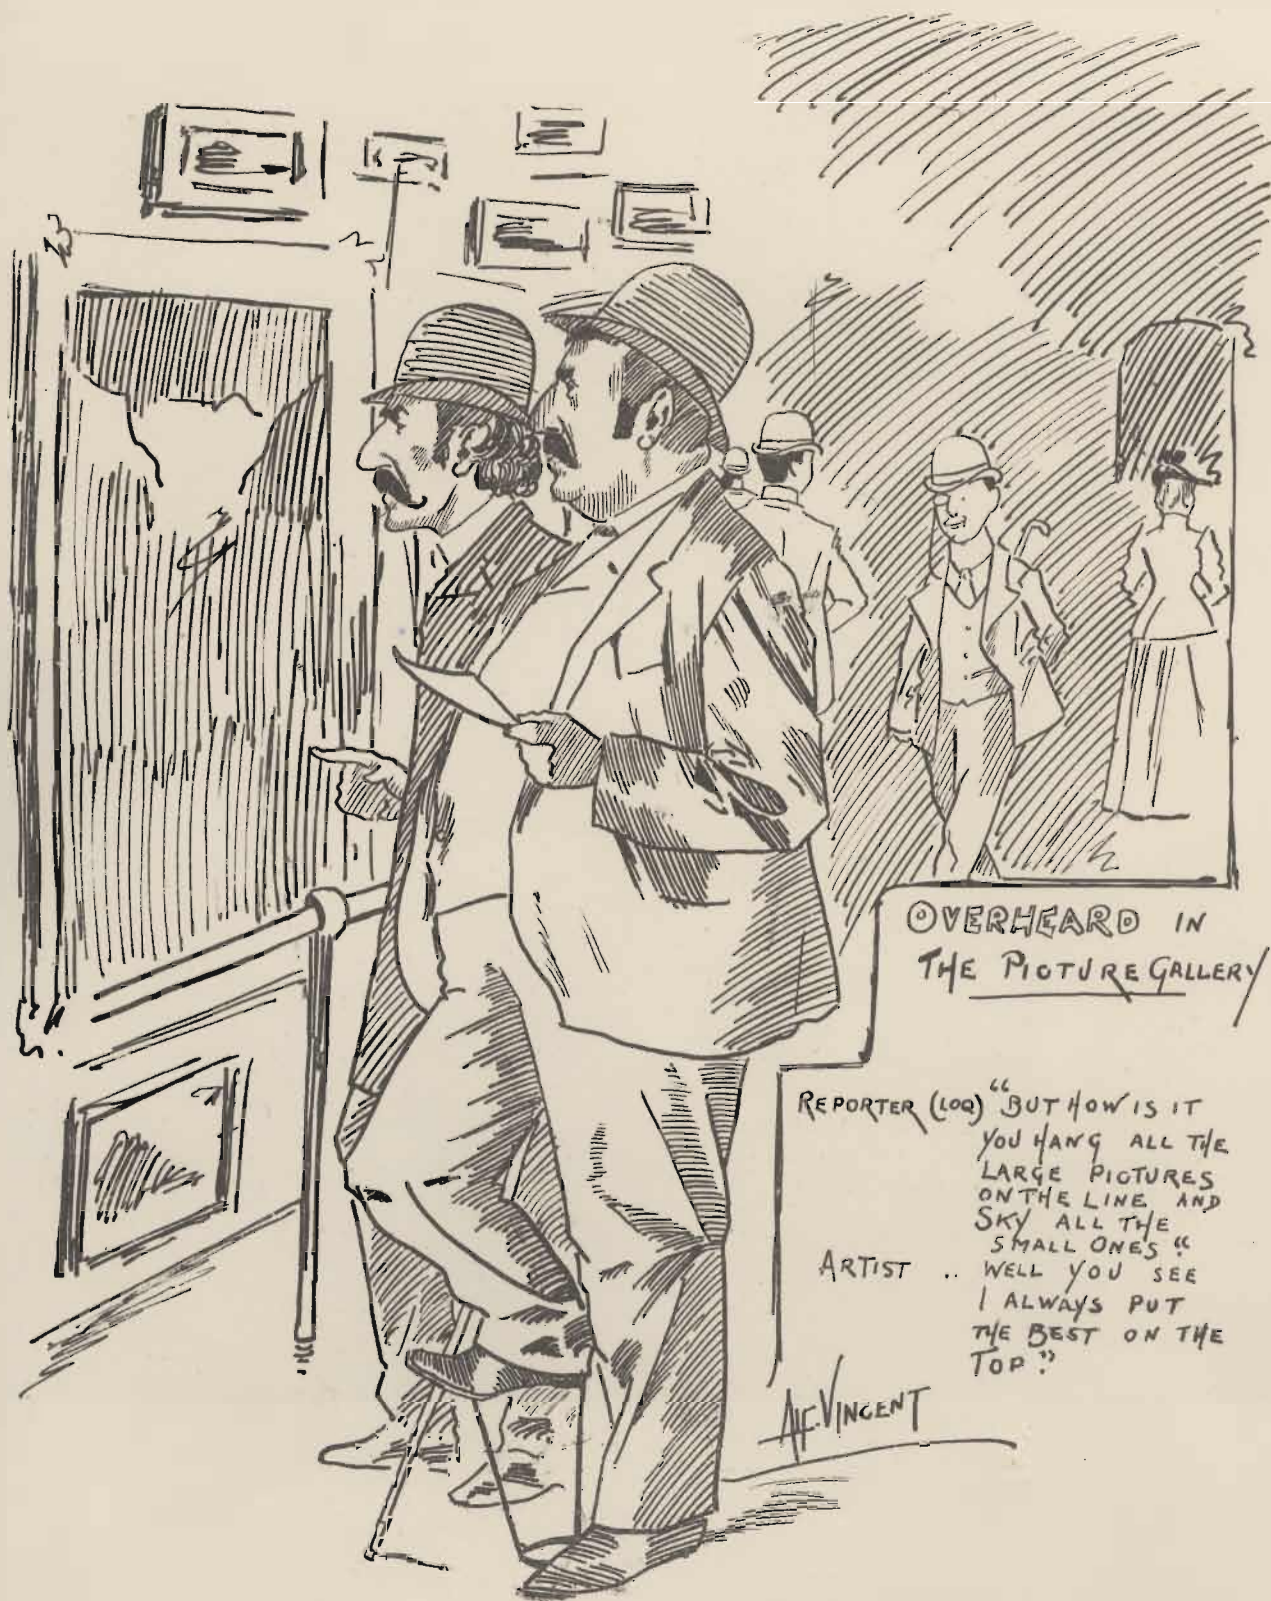 OVERHEARD IN
THE PICTURE GALLERY
REPORTER (LOQ) "BUT HOW IS IT
YOU HANG ALL THE
LARGE PICTURES
ON THE LINE AND
SKY ALL THE
SMALL ONES"
ARTIST .. WELL YOU SEE
I ALWAYS PUT
THE BEST ON THE
TOP."
ALF. VINCENT